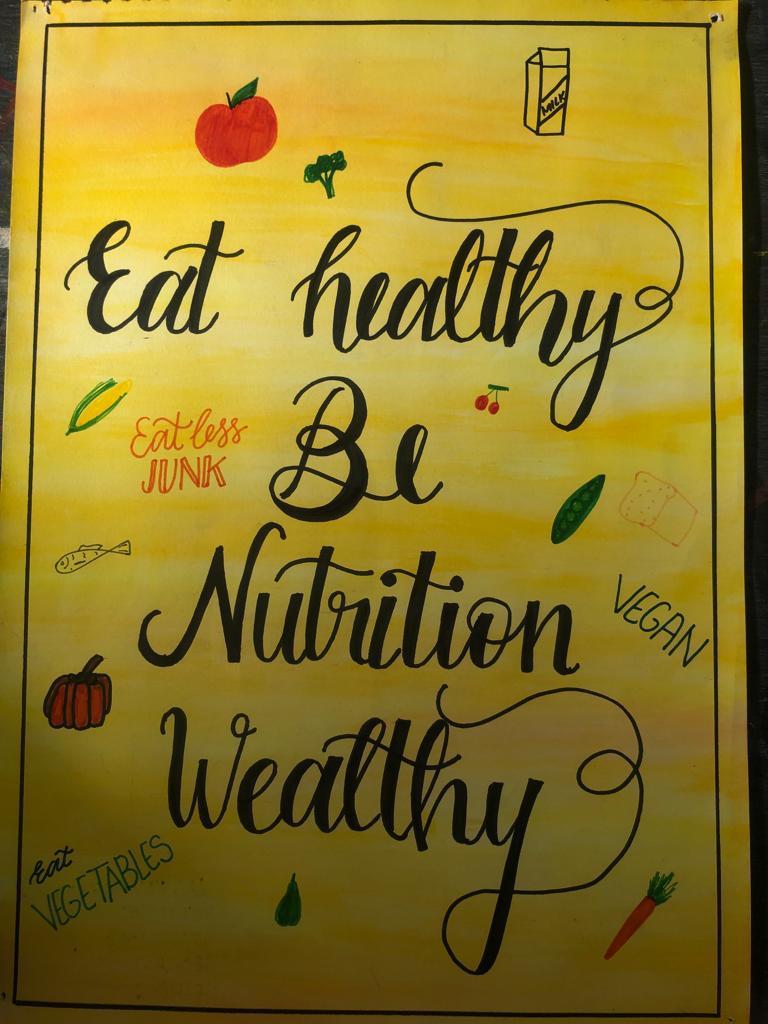 MILK
Eat healthy
Eat less
JUNK
Be
Nutrition
VEGAN
Wealthy
eat
VEGETABLES